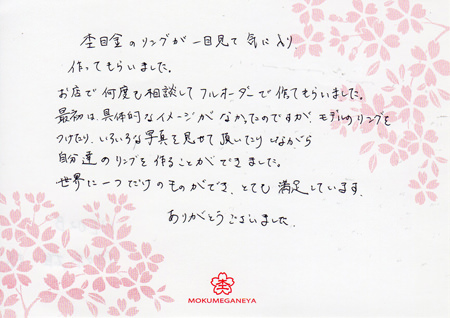 杢目金のリングが一目見て気に入り
作ってもらいました。
お店で何度も相談してフルオーダーで作てもらいました。
最初は具体的なイメージがなかったのですが、モデルのリングを
つけたり、いろいろな写真を見せて頂いたりしながら
自分達のリングを作ることができました。
世界に一つだけのものができ、とても満足しています。
ありがとうございました。
杢
MOKUMEGANEYA